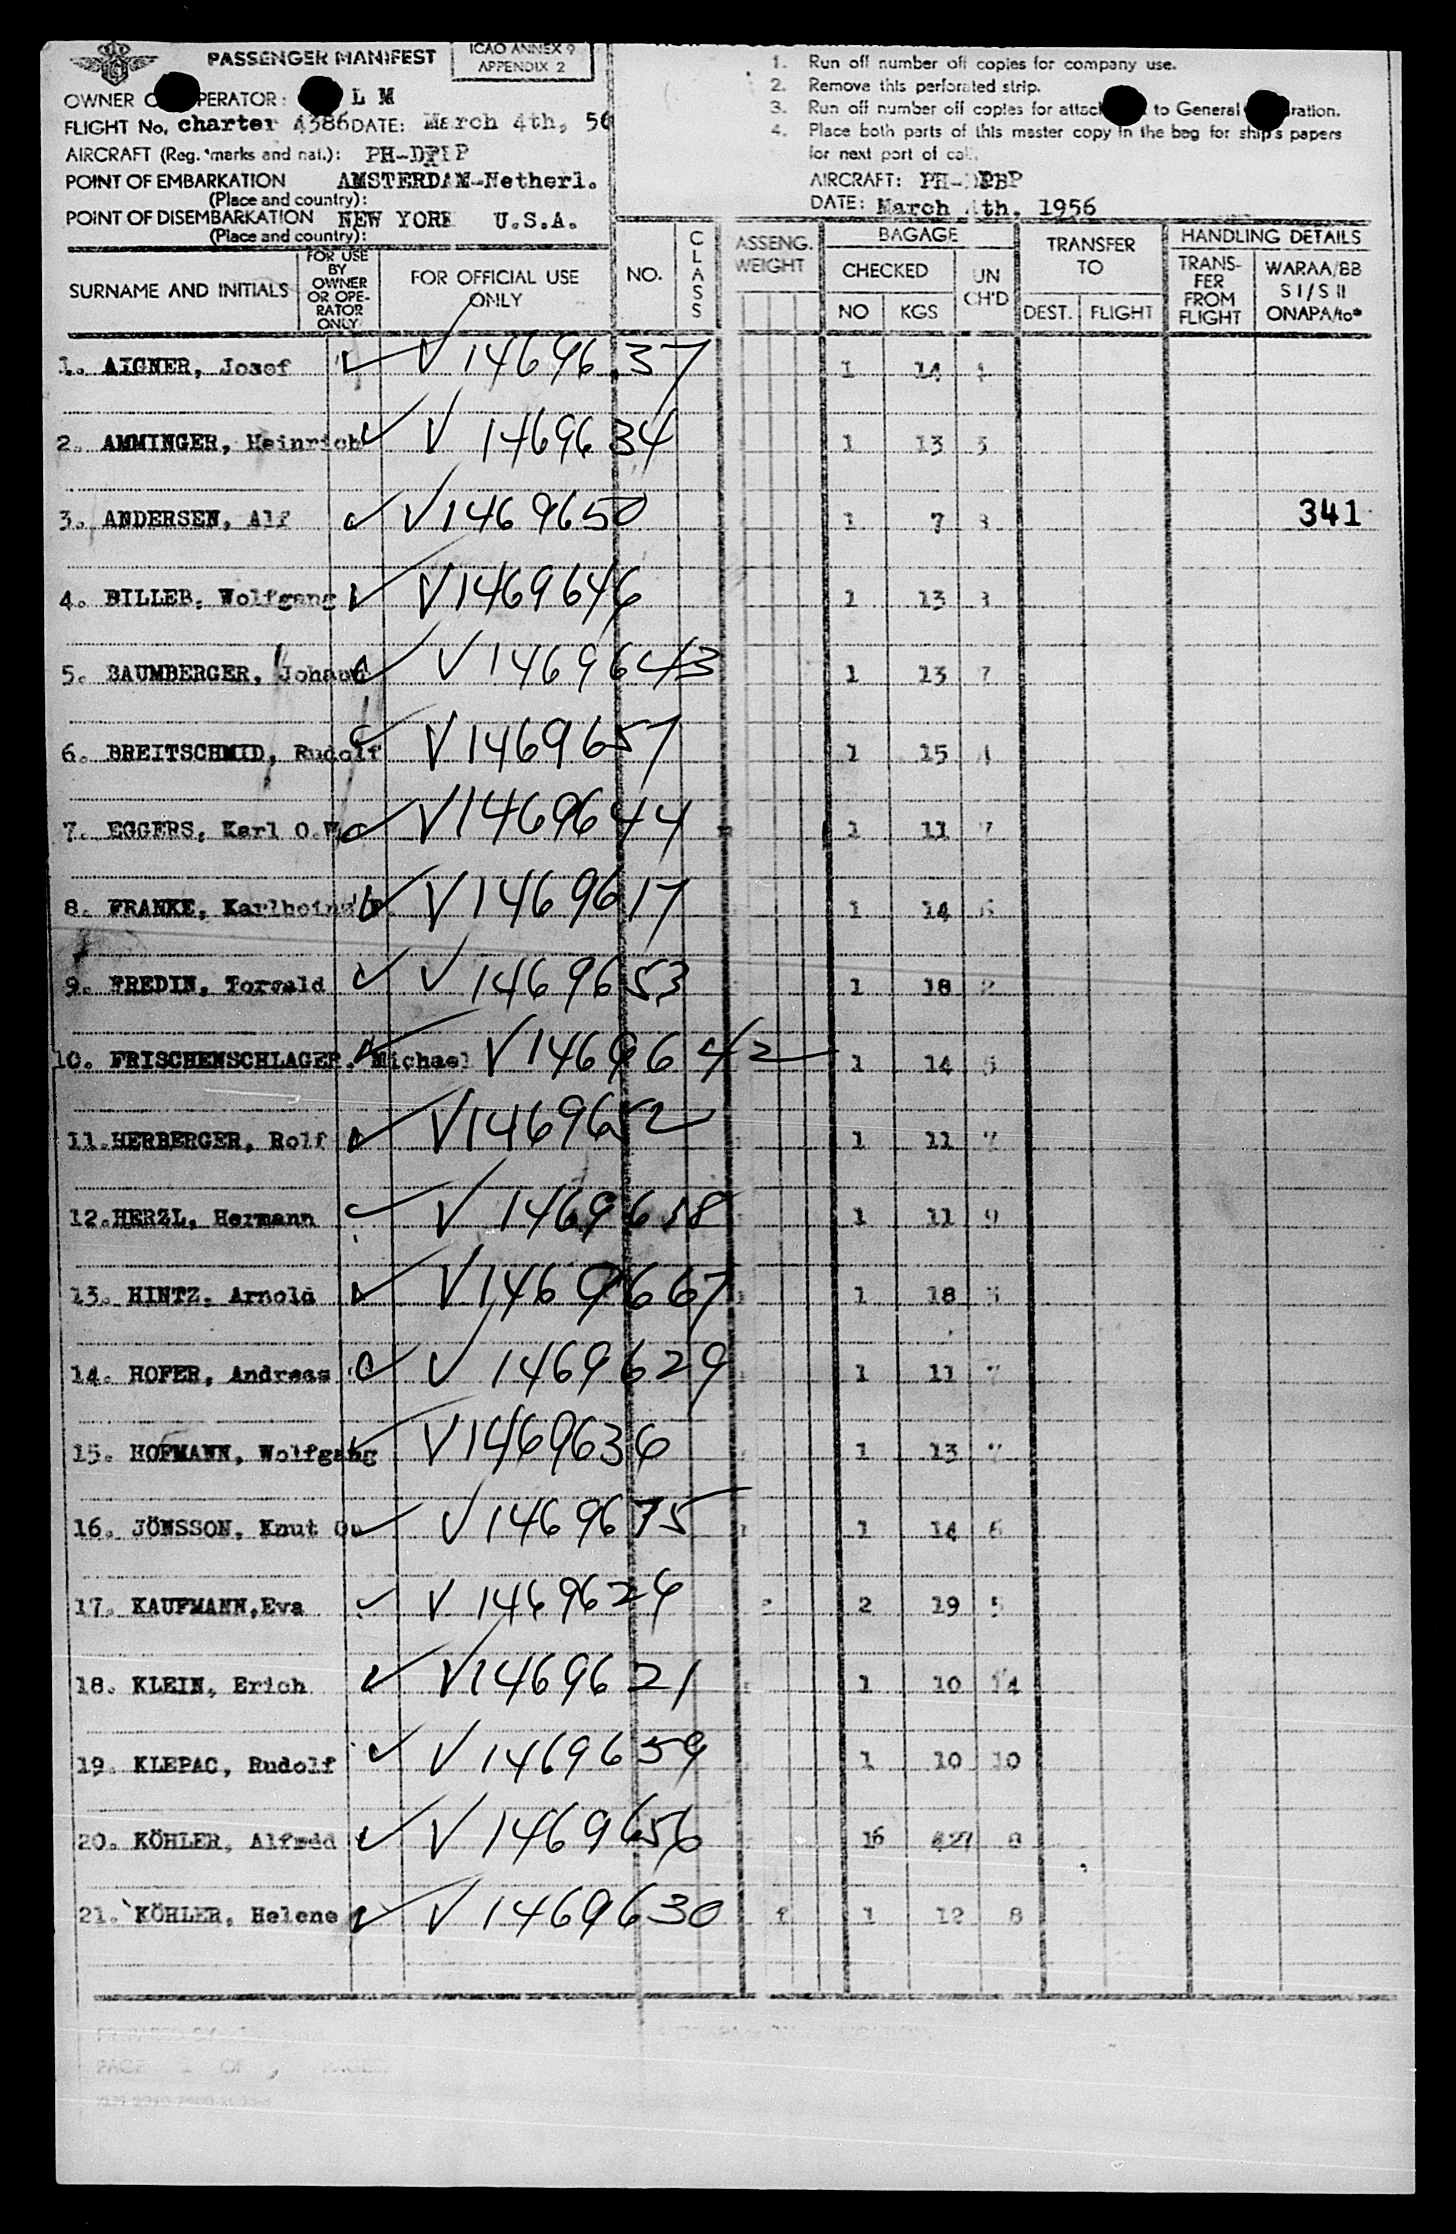 PASSENGER MANIFEST
ICAO ANNEX 9
APPENDIX 2
OWNER OPERATOR: L M
FLIGHT No. charter 4386 DATE: March 4th, 56
AIRCRAFT (Reg. marks and nat.):
POINT OF EMBARKATION AMSTERDAM-Netherl.
(Place and country):
POINT OF DISEMBARKATION NEW YORK U.S.A.
(Place and country):
1. Run off number off copies for company use.
2. Remove this perforated strip.
3. Run off number off copies for to General
4. Place both parts of this master copy in the bag for ship's papers
for next port of call.
AIRCRAFT:
DATE: March 4th, 1956
SURNAME AND INITIALS
FOR USE BY OWNER OR OPE-RATOR ONLY
FOR OFFICIAL USE ONLY
NO.
CLASS
ASSENG. WEIGHT
BAGAGE
CHECKED
NO KGS
UN CH'D
TRANSFER TO
DEST. FLIGHT
HANDLING DETAILS
TRANS-FER FROM FLIGHT
WARAA/BB
S I / S II
ONAPA/to*
1. AIGNER, Josef V 1469637 1 14
2. AMMINGER, Heinrich V 1469634 1 13
3. ANDERSEN, Alf V 1469650 1 7 341
4. BILLEB, Wolfgang V 1469646 1 13
5. BAUMBERGER, Johann V 1469643 1 13 7
6. BREITSCHMID, Rudolf V 1469657 1 15
7. EGGERS, Karl O.W. V 1469644 1 11 7
8. FRANKE, Karlheinz V 1469617 1 14
9. FREDIN, Torvald V 1469653 1 18 2
10. FRISCHENSCHLAGER, Michael V 1469642 1 14
11. HERBERGER, Rolf V 1469652 1 11 7
12. HERZL, Hermann V 1469618 1 11 9
13. HINTZ, Arnold V 1469667 1 18
14. HOFER, Andreas V 1469629 1 11 7
15. HOFMANN, Wolfgang V 1469636 1 13 7
16. JÖNSSON, Knut V 1469675 1 14 6
17. KAUFMANN, Eva V 1469624 2 19 5
18. KLEIN, Erich V 1469621 1 10 14
19. KLEPAC, Rudolf V 1469659 1 10 10
20. KÖHLER, Alfred V 1469656 16 8
21. KÖHLER, Helene V 1469630 1 12 8